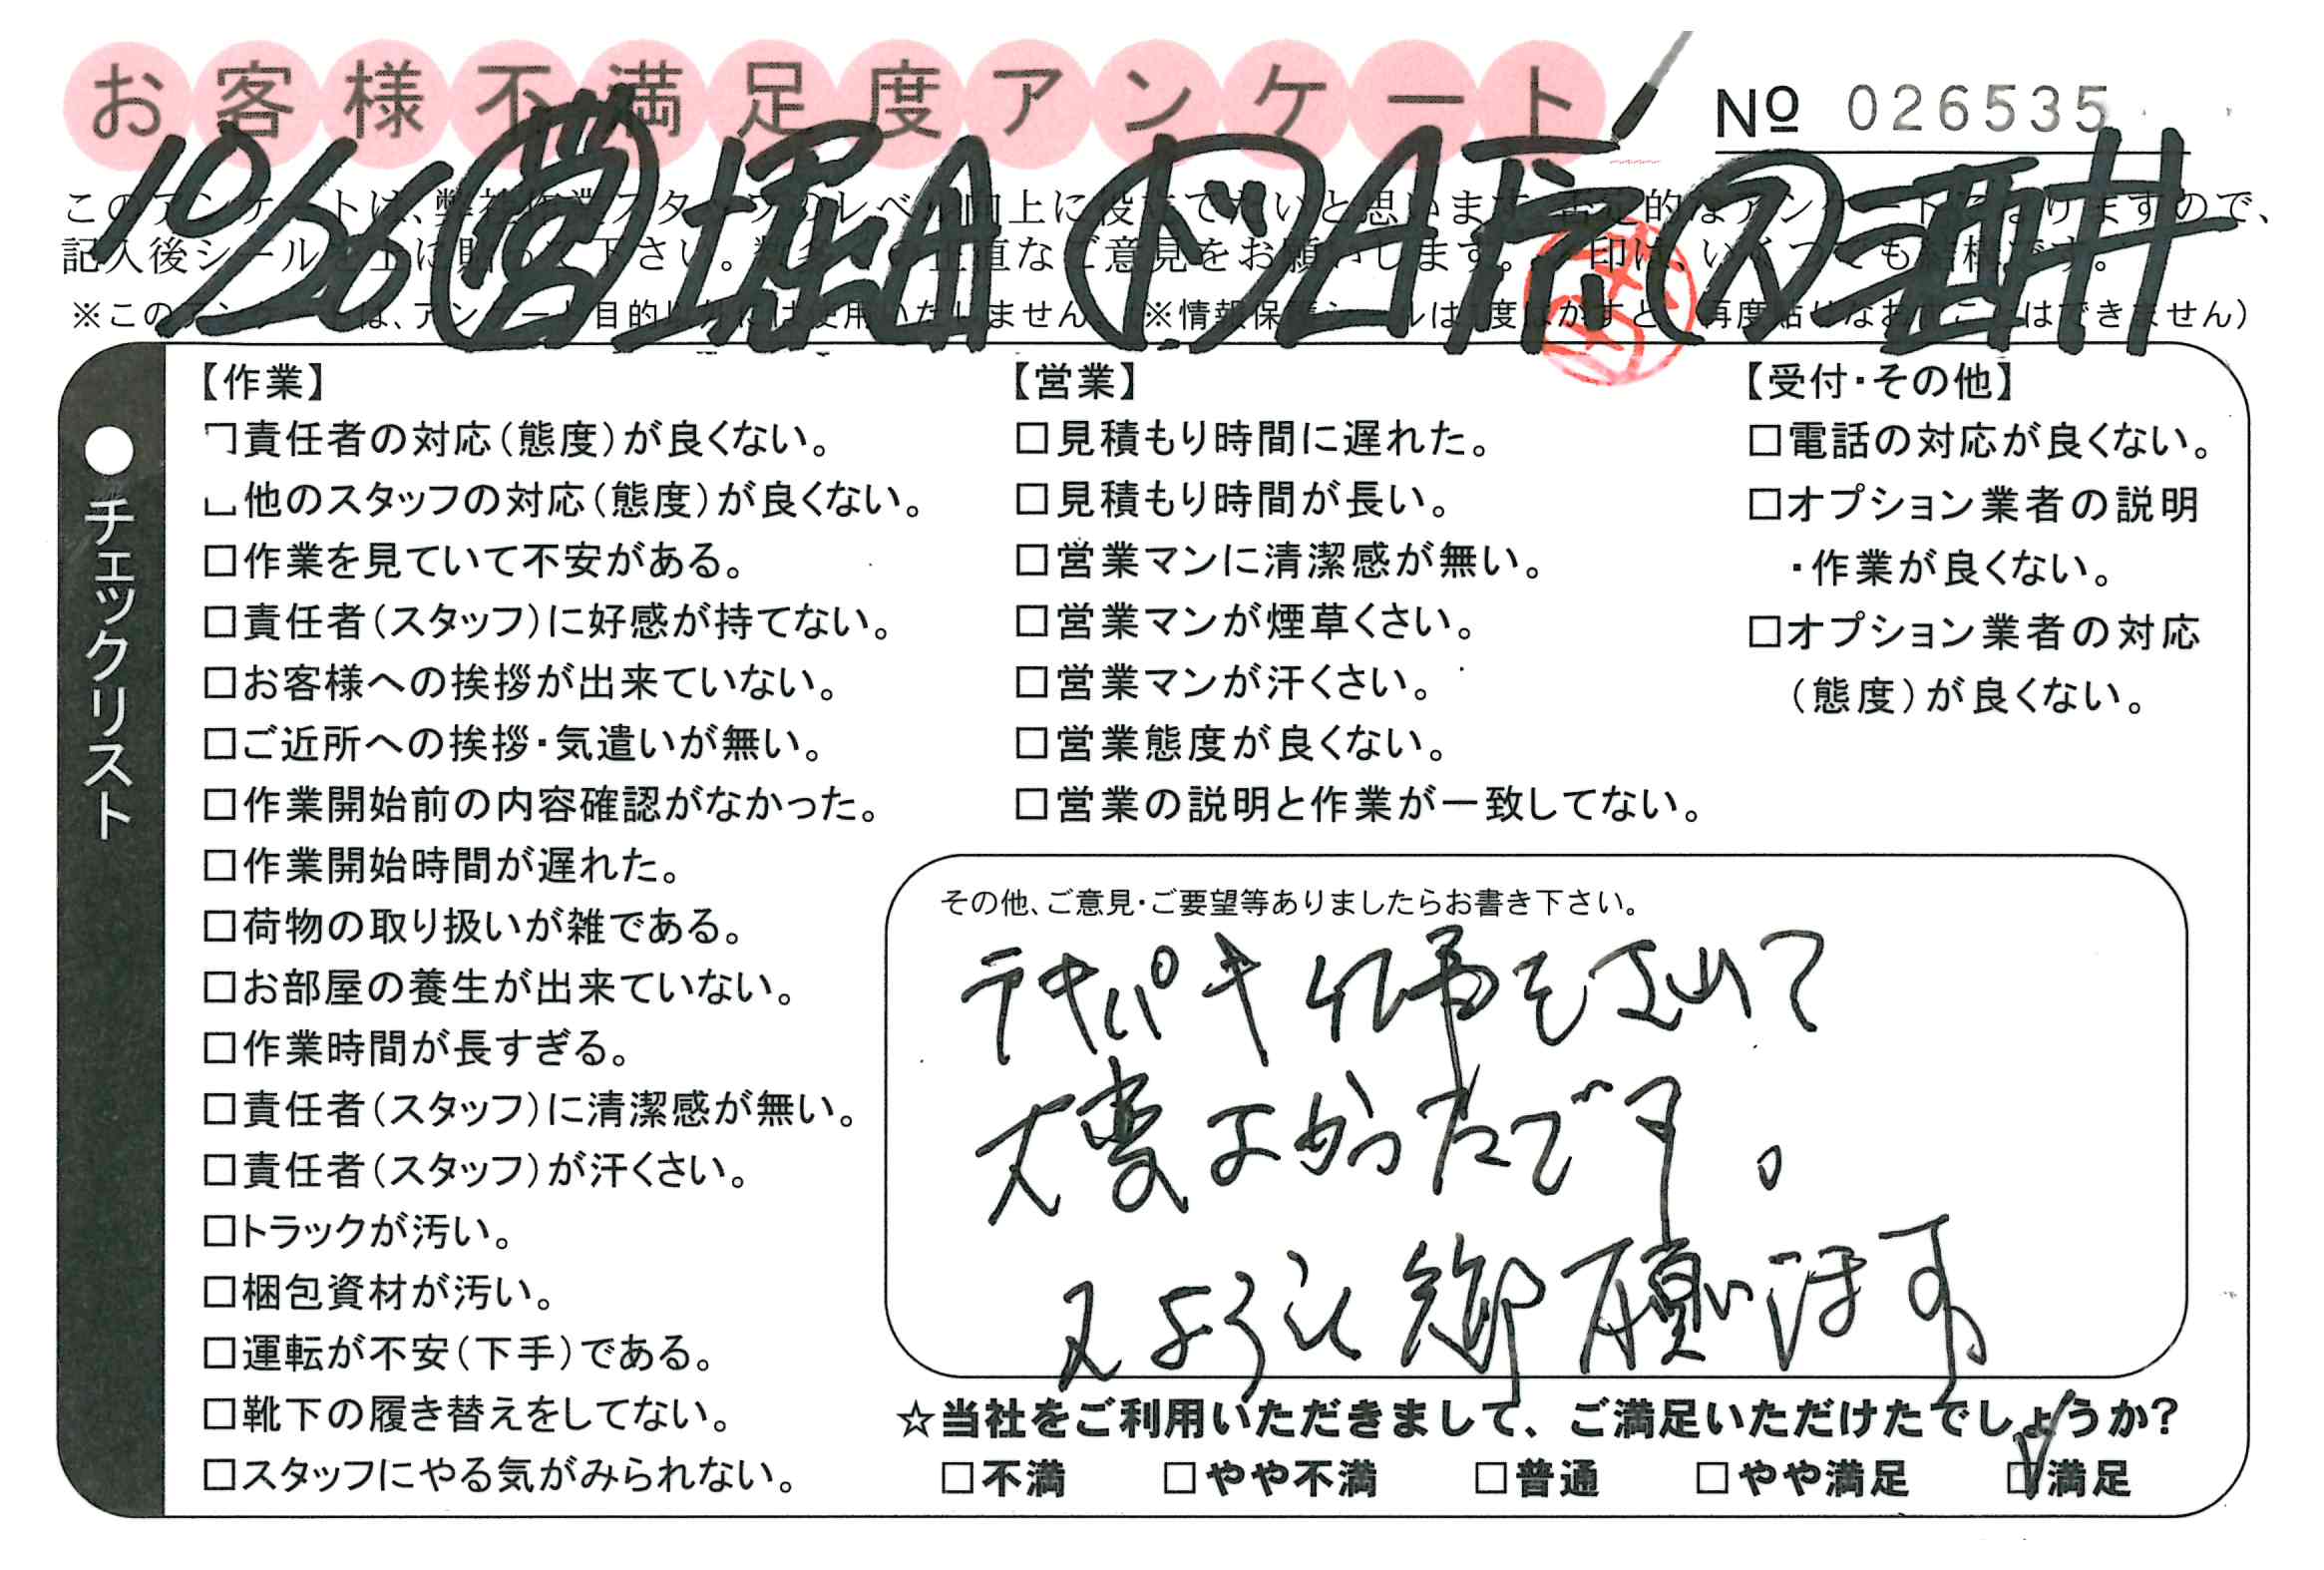 お客様不満足度アンケート
№ 026535
10/26 営 堀A ド A 高 ス 酒井
※このアンケートは、アンケート目的以外には使用いたしません。※情報保護シールは1度はがすと、再度貼りなおすことはできません）
●チェックリスト
【作業】
□責任者の対応（態度）が良くない。
□他のスタッフの対応（態度）が良くない。
□作業を見ていて不安がある。
□責任者（スタッフ）に好感が持てない。
□お客様への挨拶が出来ていない。
□ご近所への挨拶・気遣いが無い。
□作業開始前の内容確認がなかった。
□作業開始時間が遅れた。
□荷物の取り扱いが雑である。
□お部屋の養生が出来ていない。
□作業時間が長すぎる。
□責任者（スタッフ）に清潔感が無い。
□責任者（スタッフ）が汗くさい。
□トラックが汚い。
□梱包資材が汚い。
□運転が不安（下手）である。
□靴下の履き替えをしてない。
□スタッフにやる気がみられない。
【営業】
□見積もり時間に遅れた。
□見積もり時間が長い。
□営業マンに清潔感が無い。
□営業マンが煙草くさい。
□営業マンが汗くさい。
□営業態度が良くない。
□営業の説明と作業が一致してない。
【受付・その他】
□電話の対応が良くない。
□オプション業者の説明
・作業が良くない。
□オプション業者の対応
（態度）が良くない。
その他、ご意見・ご要望等ありましたらお書き下さい。
テキパキ
大変よかったです。
又よろしく御願います
☆当社をご利用いただきまして、ご満足いただけたでしょうか？
□不満 □やや不満 □普通 □やや満足 ☑満足